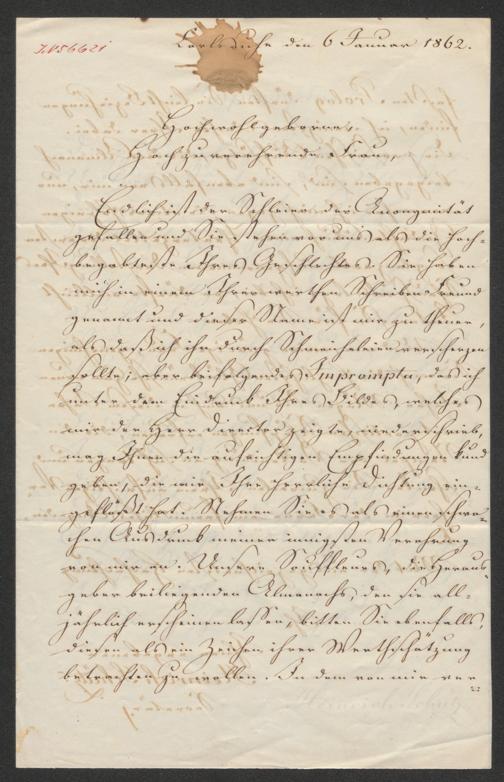 J.N 56621
Carlsruhe den 6 Januar 1862.
Hochwohlgeborne,
Hochzuverehrende Frau,
Endlich ist der Schleier der Anonymität
gefallen und Sie stehen vor uns als die hoch-
begabteste Ihres Geschlechtes. Sie haben
mich in einem Ihrer werthen Schreiben Freund
genannt und dieser Name ist mir zu theuer,
als daß ich ihn durch Schmeicheleien verscherzen
sollte; aber beifolgendes Impromptu, das ich
unter dem Eindruck Ihres Bildes, welches
mir der Herr Director zeigte, niederschrieb,
mag Ihnen die aufrichtigen Empfindungen kund
geben, die mir Ihre herrliche Dichtung ein-
geflößt hat. Nehmen Sie es als einen schwa-
chen Ausdruck meiner innigsten Verehrung
von mir an. Unsere Souffleurs, die Heraus-
geber beiliegenden Almanachs, den sie all-
jährlich erscheinen lassen, bitten Sie ebenfalls,
diesen als ein Zeichen ihrer Werthschätzung
betrachten zu wollen. In dem von mir ver